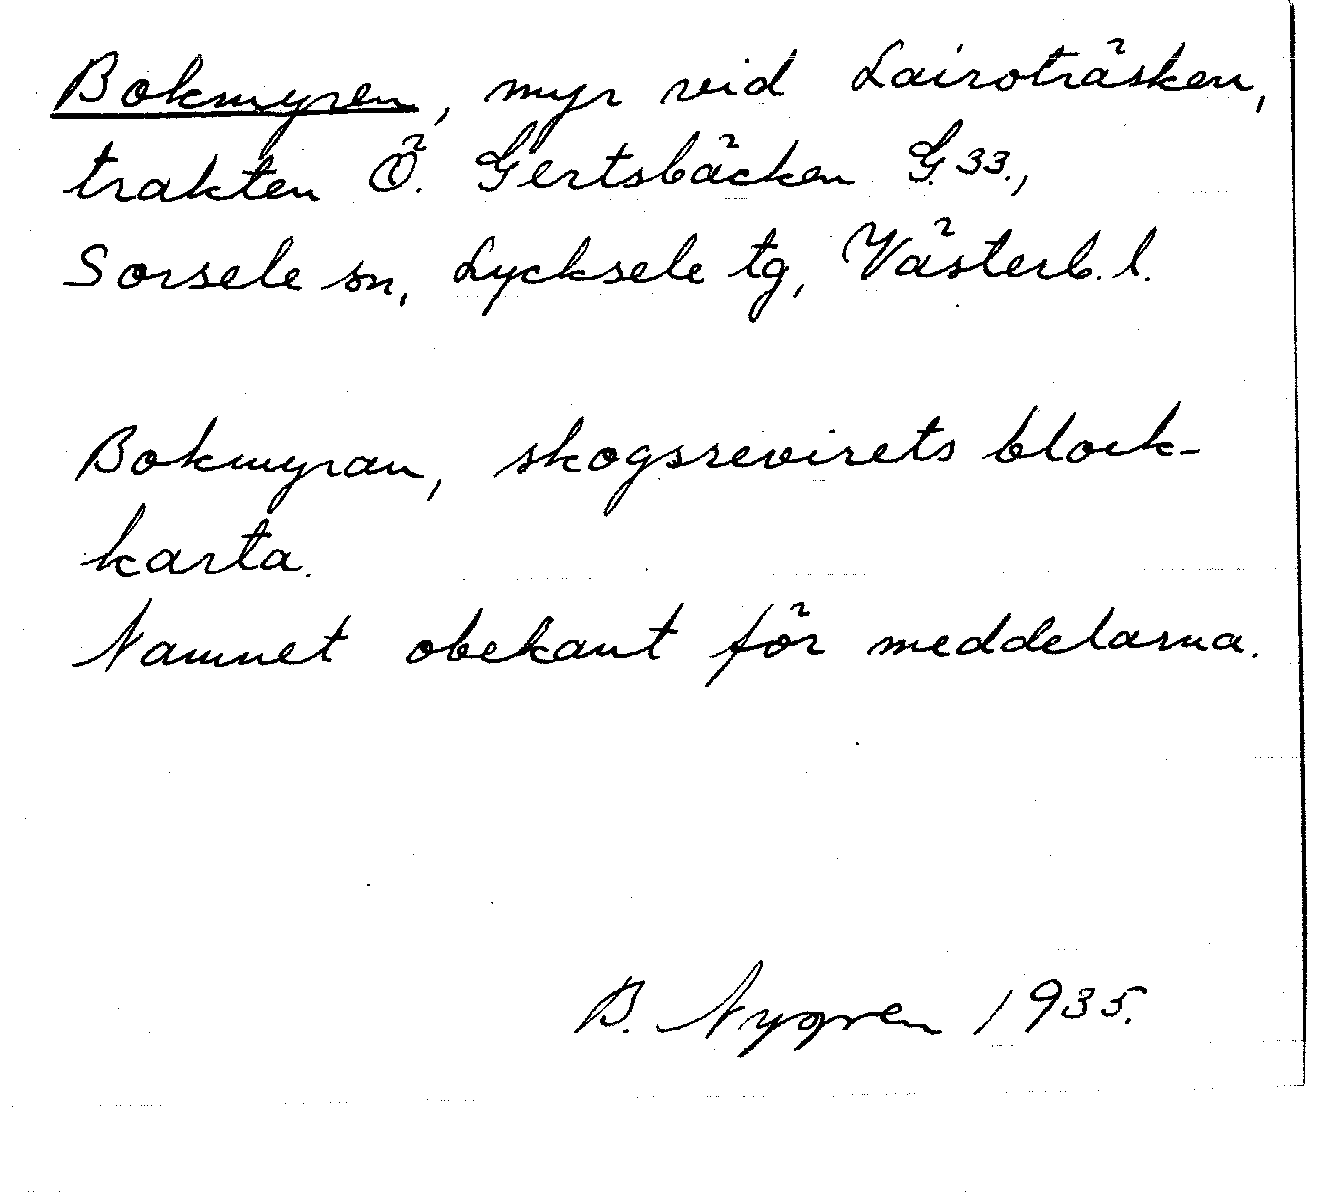 Bokmyren, myr vid Lairoträsken,
trakten Ö. Gertsbäcken G.33.,
Sorsele sn, Lycksele tg, Västerb. l.
Bokmyran, skogsrevirets block-
karta.
Namnet obekant för meddelarna.
B. Nygren 1935.